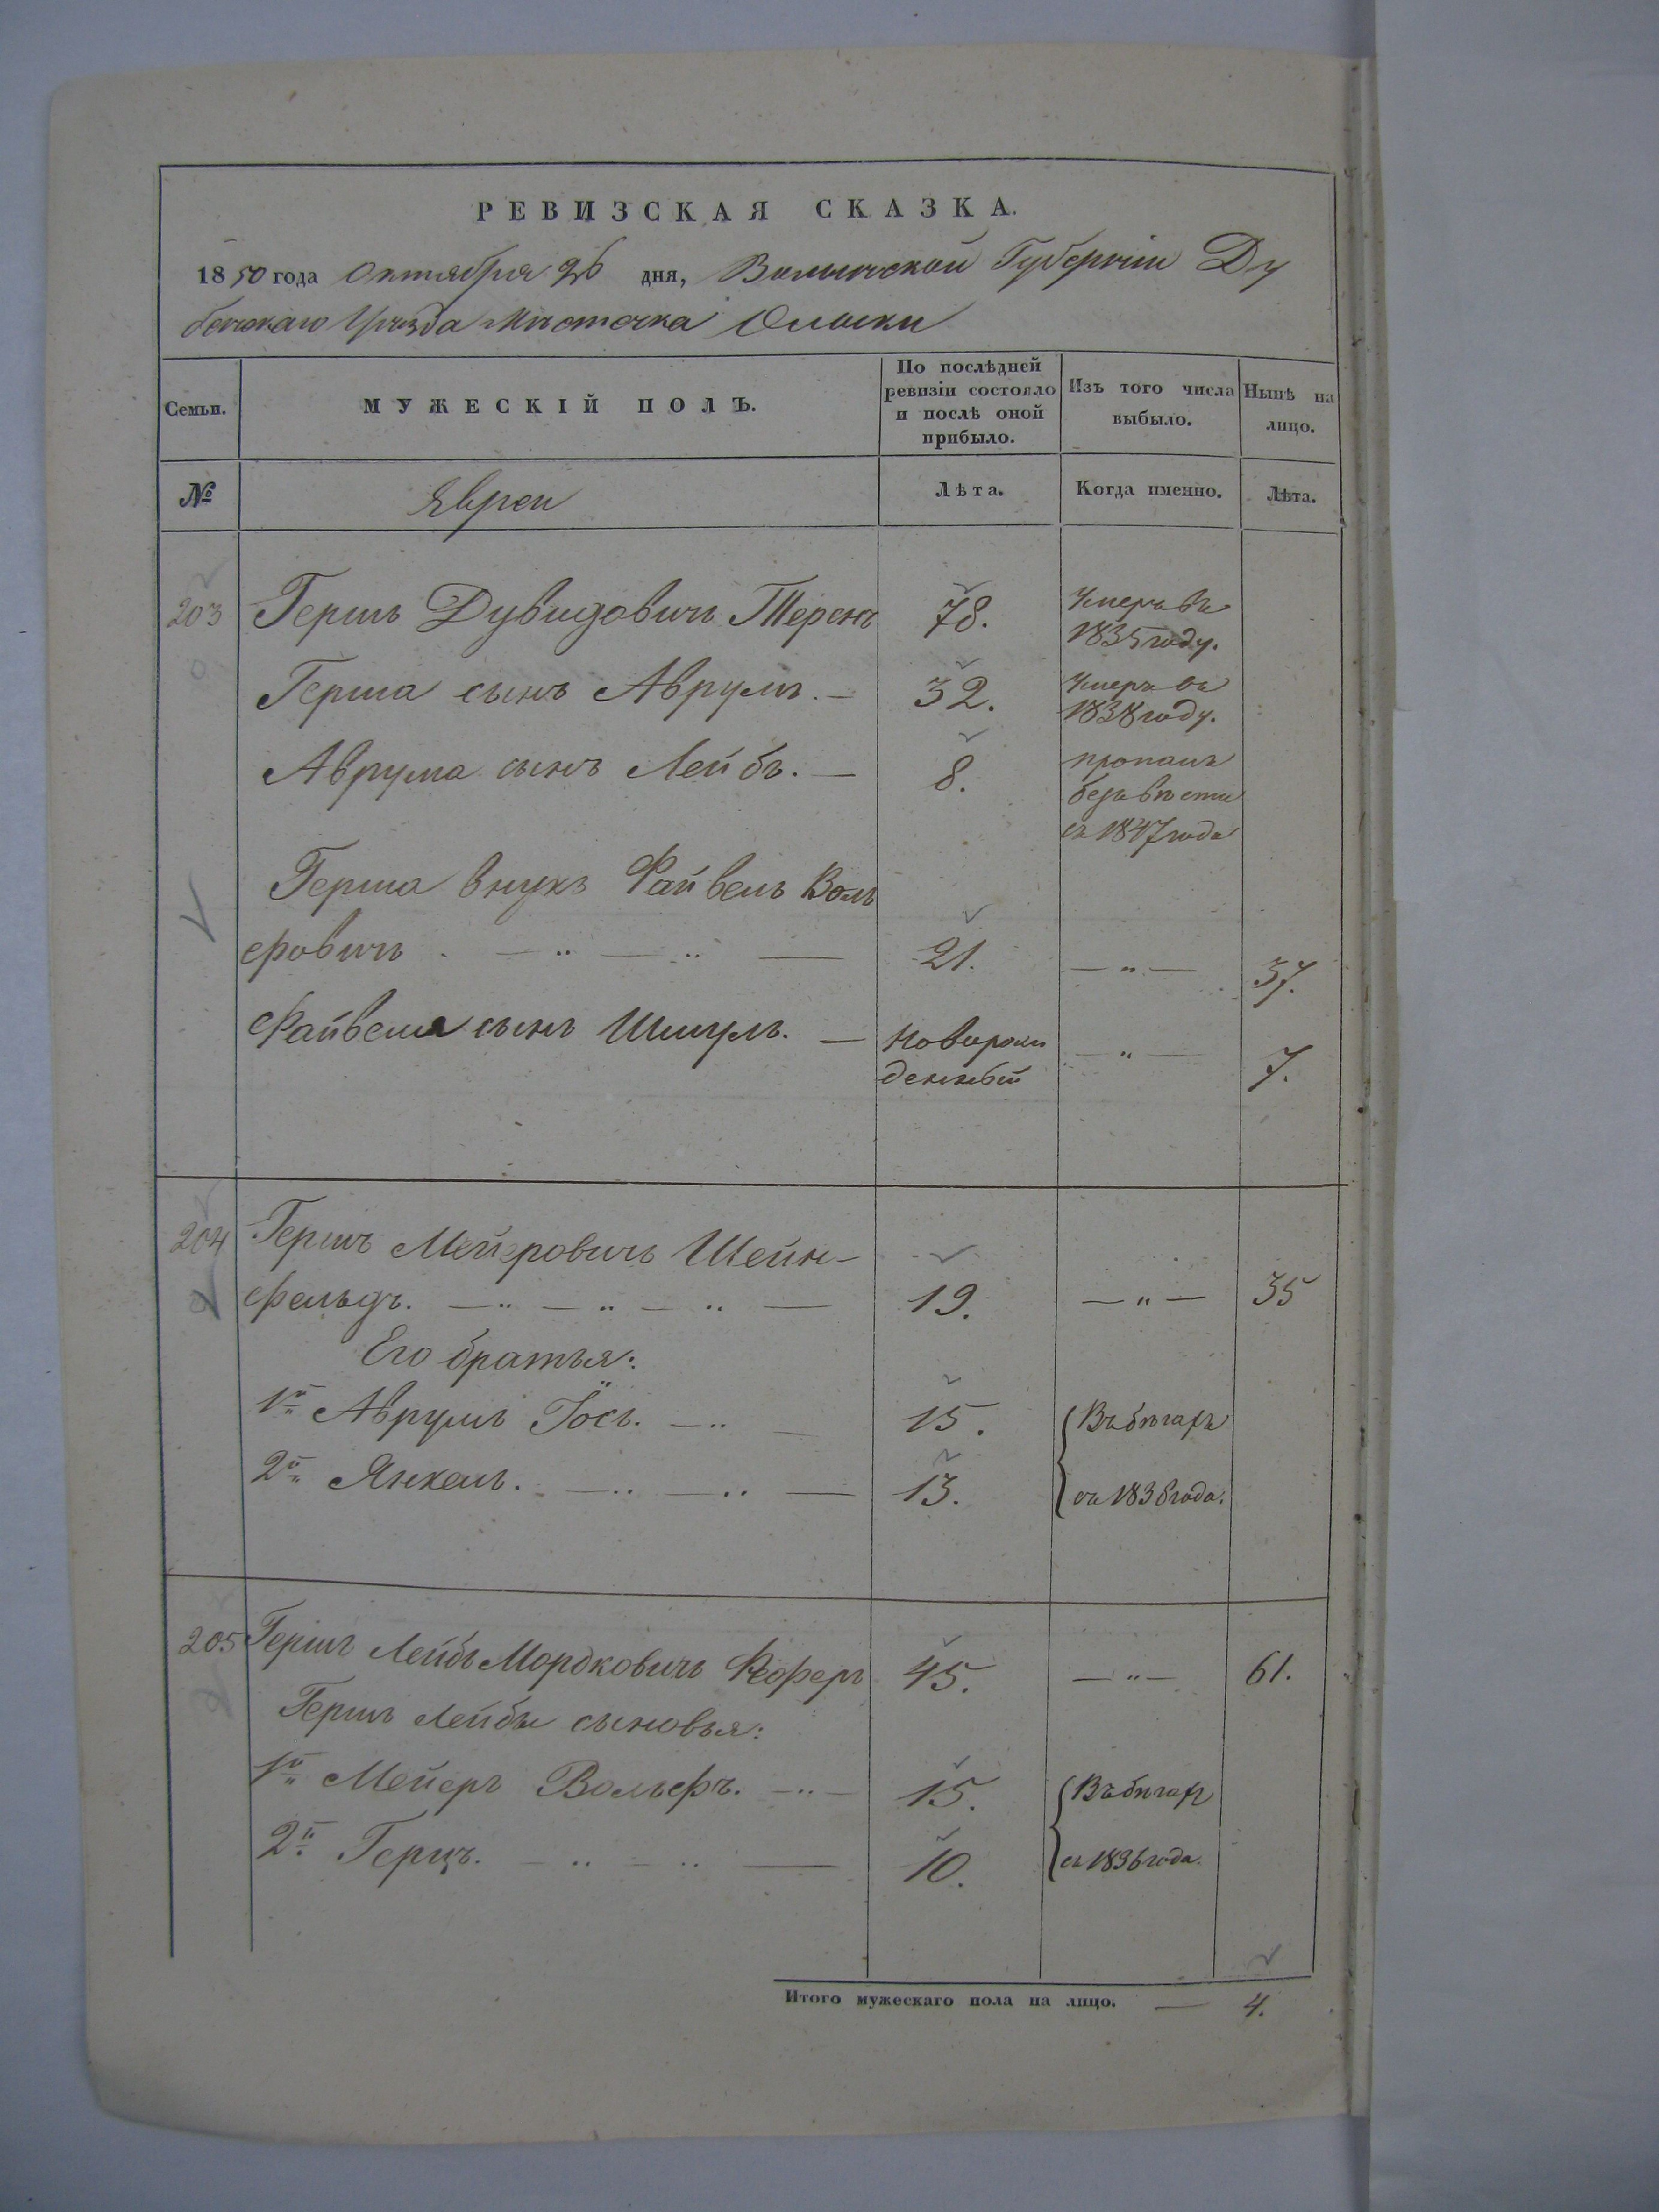 РЕВИЗСКАЯ СКАЗКА.
1850 года Октября 26 дня, Волынской Губерніи Ду
бенскаго Уѣзда Мѣстечка Олыки
Семьи.
МУЖЕСКІЙ ПОЛЪ.
По послѣдней
ревизіи состояло
и послѣ оной
прибыло.
Изъ того числа
выбыло.
Нынѣ на
лицо.
№
Евреи
Лѣта.
Когда именно.
Лѣта.
203 Гершъ Дувидовичъ Теренъ 78. Умеръ въ
1835 году.
Герша сынъ Аврумъ. — 32. Умеръ въ
1838 году.
Аврума сынъ Лейбъ. — 8. пропалъ
безъ вѣсти
съ 1847 года
Герша внукъ Файвель Воль
фовичъ . — „ — „ — 21. — „ — 37.
Файвеля сынъ Шмуль. — Новорож
денный — „ — 7.
204 Гершъ Мейеровичъ Шейн-
фельдъ. — „ — „ — „ — 19. — „ — 35
Его братья:
1й Аврумъ Іось. — „ — 15. Въ бѣгахъ
2й Янкель. — „ — „ — 13. съ 1838 года.
205 Гершъ Лейбъ Мордковичъ 45. — „ — 61.
Гершъ Лейбы сыновья:
1й Мейеръ Вольфъ. — „ — 15. Въ бѣгах
2й Герцъ. — „ — „ — 10. съ 1836 года.
Итого мужескаго пола на лицо. — 4.